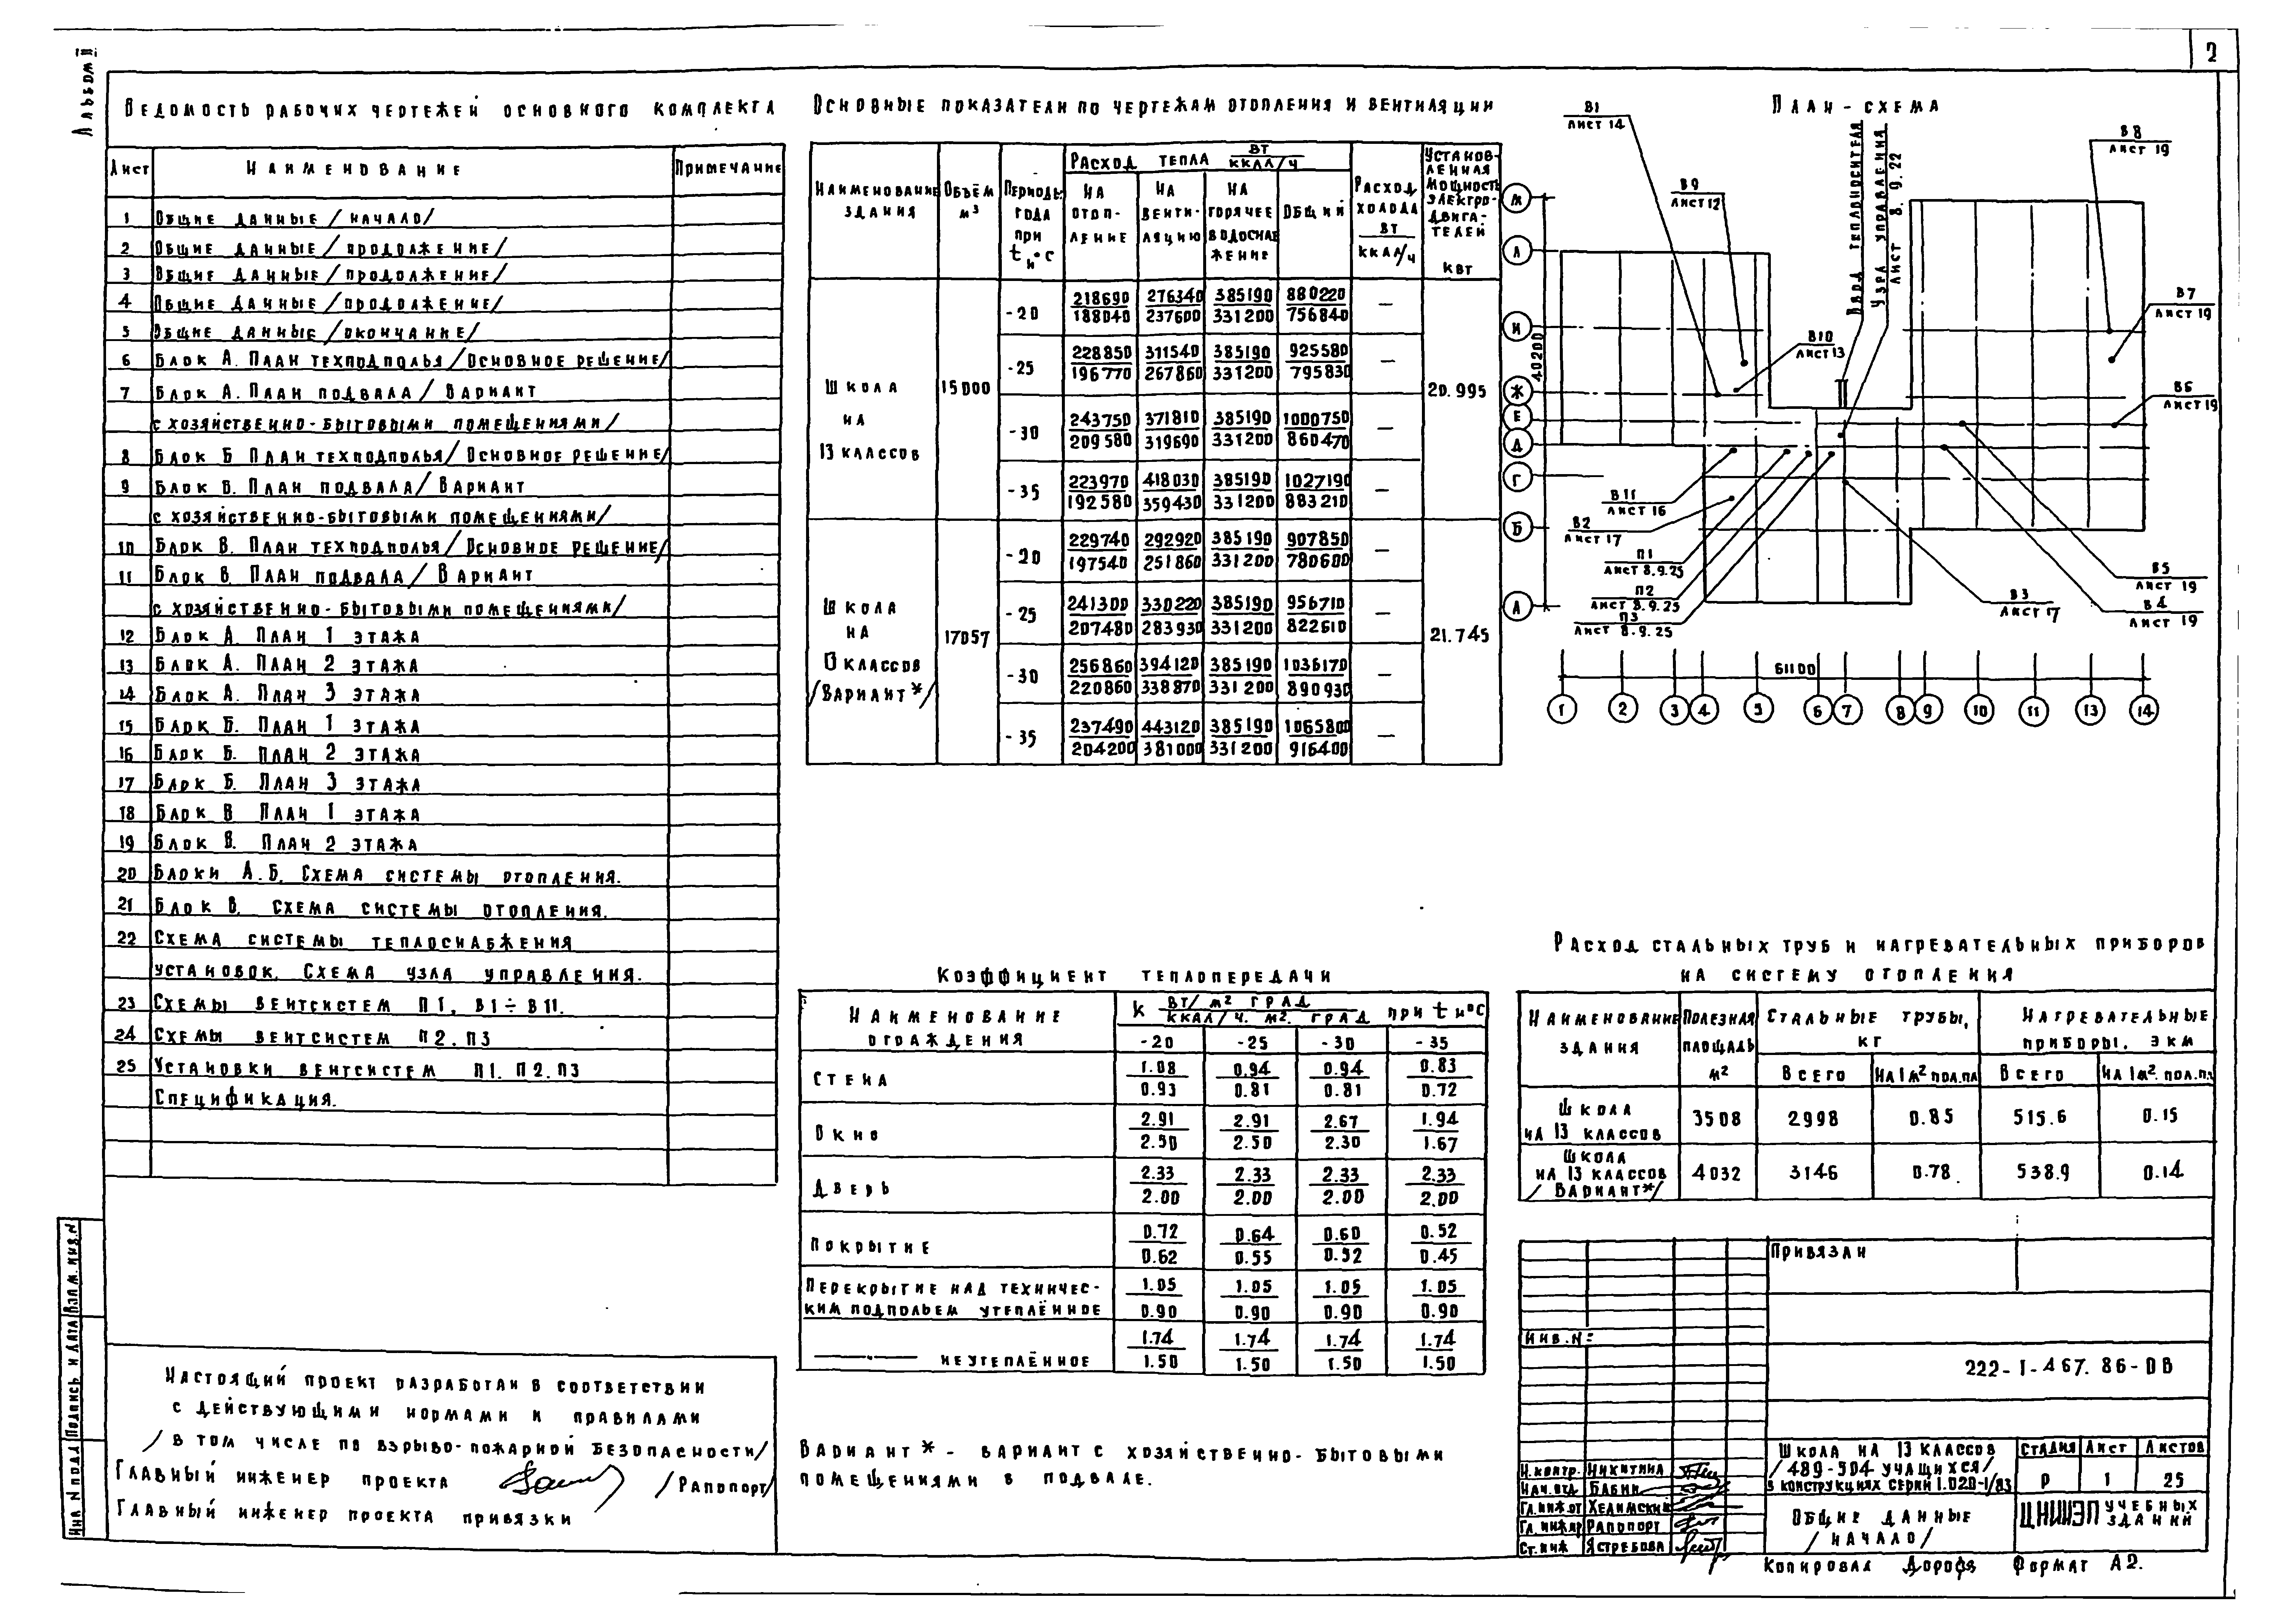 Альбом III
2
Ведомость рабочих чертежей основного комплекта
Лист Наименование Примечание
1 Общие данные /начало/
2 Общие данные /продолжение/
3 Общие данные /продолжение/
4 Общие данные /продолжение/
5 Общие данные /окончание/
6 Блок А. План техподполья /Основное решение/
7 Блок А. План подвала / Вариант
с хозяйственно-бытовыми помещениями/
8 Блок Б План техподполья/ Основное решение/
9 Блок Б. План подвала/ Вариант
с хозяйственно-бытовыми помещениями/
10 Блок В. План техподполья/ Основное решение/
11 Блок В. План подвала/ Вариант
с хозяйственно-бытовыми помещениями/
12 Блок А. План 1 этажа
13 Блок А. План 2 этажа
14 Блок А. План 3 этажа
15 Блок Б. План 1 этажа
16 Блок Б. План 2 этажа
17 Блок Б. План 3 этажа
18 Блок В План 1 этажа
19 Блок В. План 2 этажа
20 Блоки А.Б. Схема системы отопления.
21 Блок В. Схема системы отопления.
22 Схема системы теплоснабжения
установок. Схема узла управления.
23 Схемы вентсистем П1, В1÷В11.
24 Схемы вентсистем П2.П3
25 Установки вентсистем П1. П2.П3
Спецификация.
Настоящий проект разработан в соответствии
с действующими нормами и правилами
/в том числе по взрыво-пожарной безопасности/
Главный инженер проекта /Рапопорт/
Главный инженер проекта привязки
Инв N подл Подпись и дата Взам. инв. N
Основные показатели по чертежам отопления и вентиляции
Наименование здания Объём м³ Периоды года при tн°С Расход тепла Вт ккал/ч Расход холода Вт ккал/ч Установленная мощность электродвигателей кВт
на отопление на вентиляцию на горячее водоснабжение общий
Школа на 13 классов 15000 20.995
-20 218690 276340 385190 880220 —
188040 237600 331200 756840
-25 228850 311540 385190 925580 —
196770 267860 331200 795830
-30 243750 371810 385190 1000750 —
209580 319690 331200 860470
-35 223970 418030 385190 1027190 —
192580 359430 331200 883210
Школа на 13 классов /Вариант*/ 17057 21.745
-20 229740 292920 385190 907850 —
197540 251860 331200 780600
-25 241300 330220 385190 956710 —
207480 283930 331200 822610
-30 256860 394120 385190 1036170 —
220860 338870 331200 890930
-35 237490 443120 385190 1065800 —
204200 381000 331200 916400
План-схема
В1 лист 14
В9 лист 12
В10 лист 13
Ввод теплоносителя
Узел управления лист 8.9.22
В8 лист 19
В7 лист 19
В6 лист 19
В5 лист 19
В4 лист 19
В3 лист 17
В11 лист 16
В2 лист 17
П1 лист 8.9.25
П2 лист 8.9.25
П3 лист 8.9.25
40200
61100
М Л И Ж Е Д Г Б А
1 2 3 4 5 6 7 8 9 10 11 13 14
Коэффициент теплопередачи
Наименование ограждения К Вт/м² град ккал/ч. м². град при tн°С
-20 -25 -30 -35
Стена 1.08 0.94 0.94 0.83
0.93 0.81 0.81 0.72
Окно 2.91 2.91 2.67 1.94
2.50 2.50 2.30 1.67
Дверь 2.33 2.33 2.33 2.33
2.00 2.00 2.00 2.00
Покрытие 0.72 0.64 0.60 0.52
0.62 0.55 0.52 0.45
Перекрытие над техническим подпольем утеплённое 1.05 1.05 1.05 1.05
0.90 0.90 0.90 0.90
неутеплённое 1.74 1.74 1.74 1.74
1.50 1.50 1.50 1.50
Вариант* - вариант с хозяйственно-бытовыми
помещениями в подвале.
Расход стальных труб и нагревательных приборов
на систему отопления
Наименование здания Полезная площадь м² Стальные трубы, кг Нагревательные приборы, экм
Всего на 1м² пол.пл Всего на 1м². пол.пл
Школа на 13 классов 3508 2998 0.85 515.6 0.15
Школа на 13 классов /Вариант*/ 4032 3146 0.78 538.9 0.14
Привязан
Инв.N:
222-1-467.86-ОВ
Н.контр. Никитина
Нач.отд Бабин
Гл.инж от Хелимский
Гл.инж пр Рапопорт
Ст.инж Ястребова
Школа на 13 классов
/489-504 учащихся/
в конструкциях серии 1.020-1/83
Стадия Лист Листов
Р 1 25
Общие данные
/начало/
ЦНИИЭП учебных зданий
Копировал Формат А2.